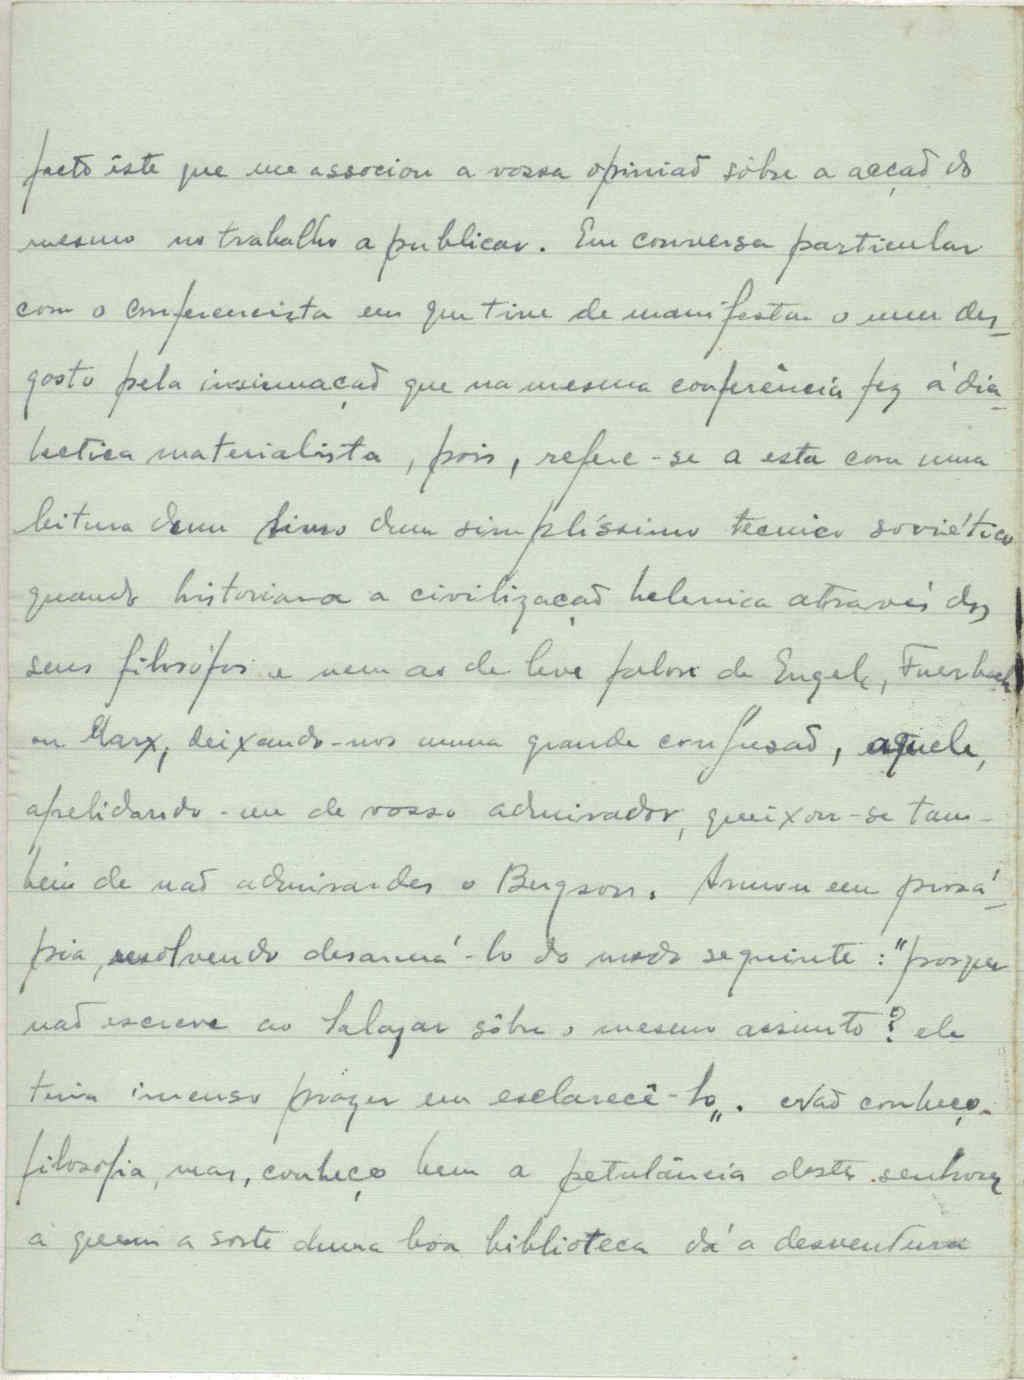 facto êste que me associou a vossa opinião sôbre a acção do
mesmo no trabalho a publicar. Em conversa particular
com o conferencista em que tive de manifestar o meu des-
gosto pela insinuação que na mesma conferência fez á dia-
lectica materialista, pois, refere-se a esta com uma
leitura dum livro dum simplíssimo tecnico soviético
quando historiava a civilização helenica através dos
seus filosófos e nem ao de leve falou de Engels, Fuerbach
ou Marx, deixando-nos numa grande confusão, aquele,
apelidando-me de vosso admirador, queixou-se tam-
bem de não admirardes o Bergson. Armou em prosá-
pia, resolvendo desarmá-lo do modo seguinte: "porque
não escreve ao Salazar sôbre o mesmo assunto? ele
teria imenso prazer em esclarecê-lo". Não conheço
filosofia, mas, conheço bem a petulância destes senhores
a quem a sorte duma boa biblioteca dá a desventura